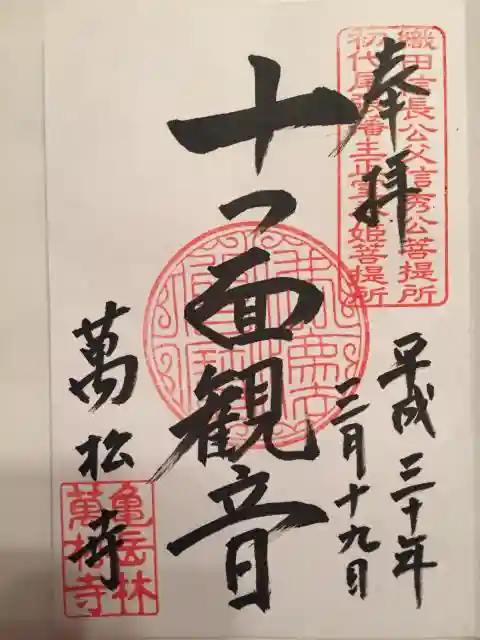 織田信長公父信秀公菩提所
初代尾張藩主正室春姫菩提所
奉拝
平成三十年
三月十九日
十一面観音
萬松寺
亀岳林
萬松寺